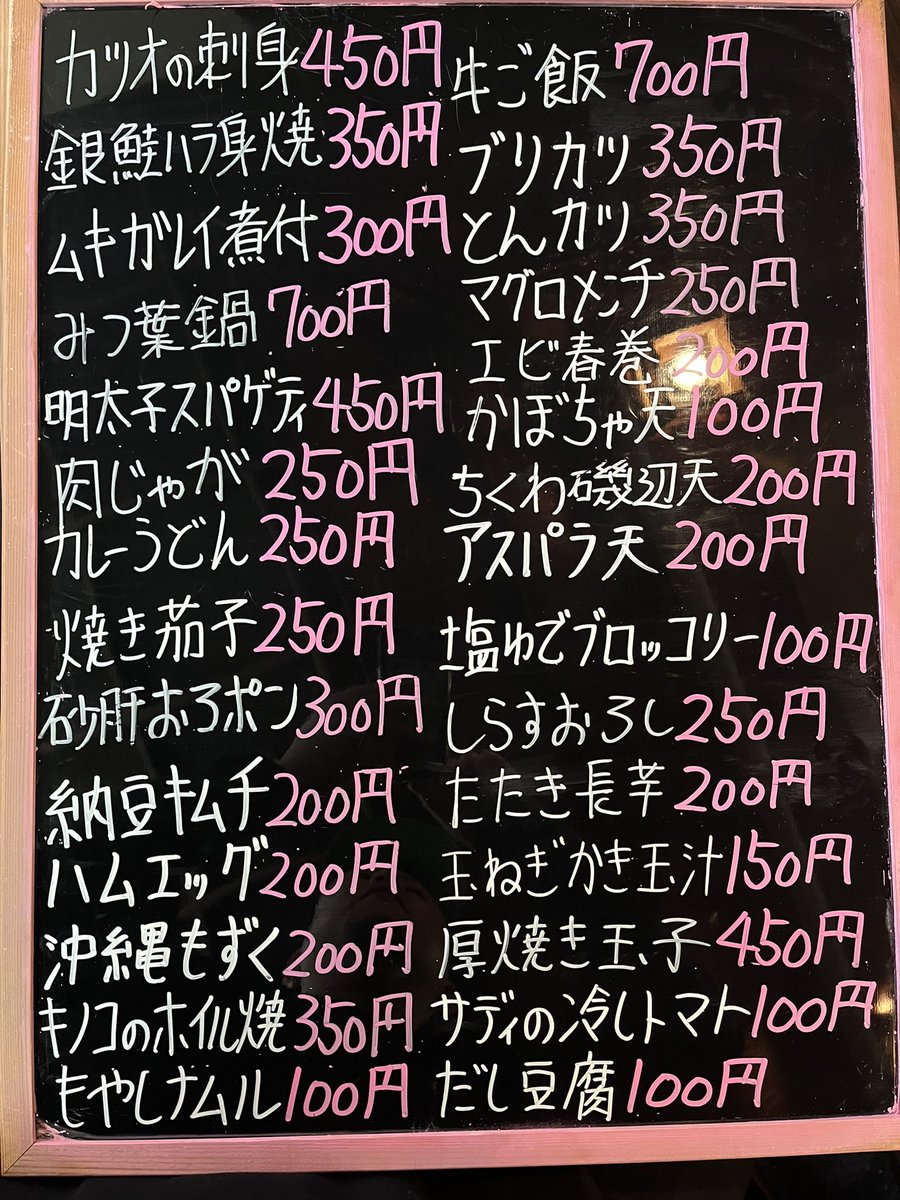 カツオの刺身450円
銀鮭ハラ身焼350円
ムキガレイ煮付300円
みつ葉鍋700円
明太子スパゲティ450円
肉じゃが250円
カレーうどん250円
焼き茄子250円
砂肝おろポン300円
納豆キムチ200円
ハムエッグ200円
沖縄もずく200円
キノコのホイル焼350円
もやしナムル100円
牛ご飯700円
ブリカツ350円
とんカツ350円
マグロメンチ250円
エビ春巻200円
かぼちゃ天100円
ちくわ磯辺天200円
アスパラ天200円
塩ゆでブロッコリー100円
しらすおろし250円
たたき長芋200円
玉ねぎかき玉汁150円
厚焼き玉子450円
サディの冷しトマト100円
だし豆腐100円